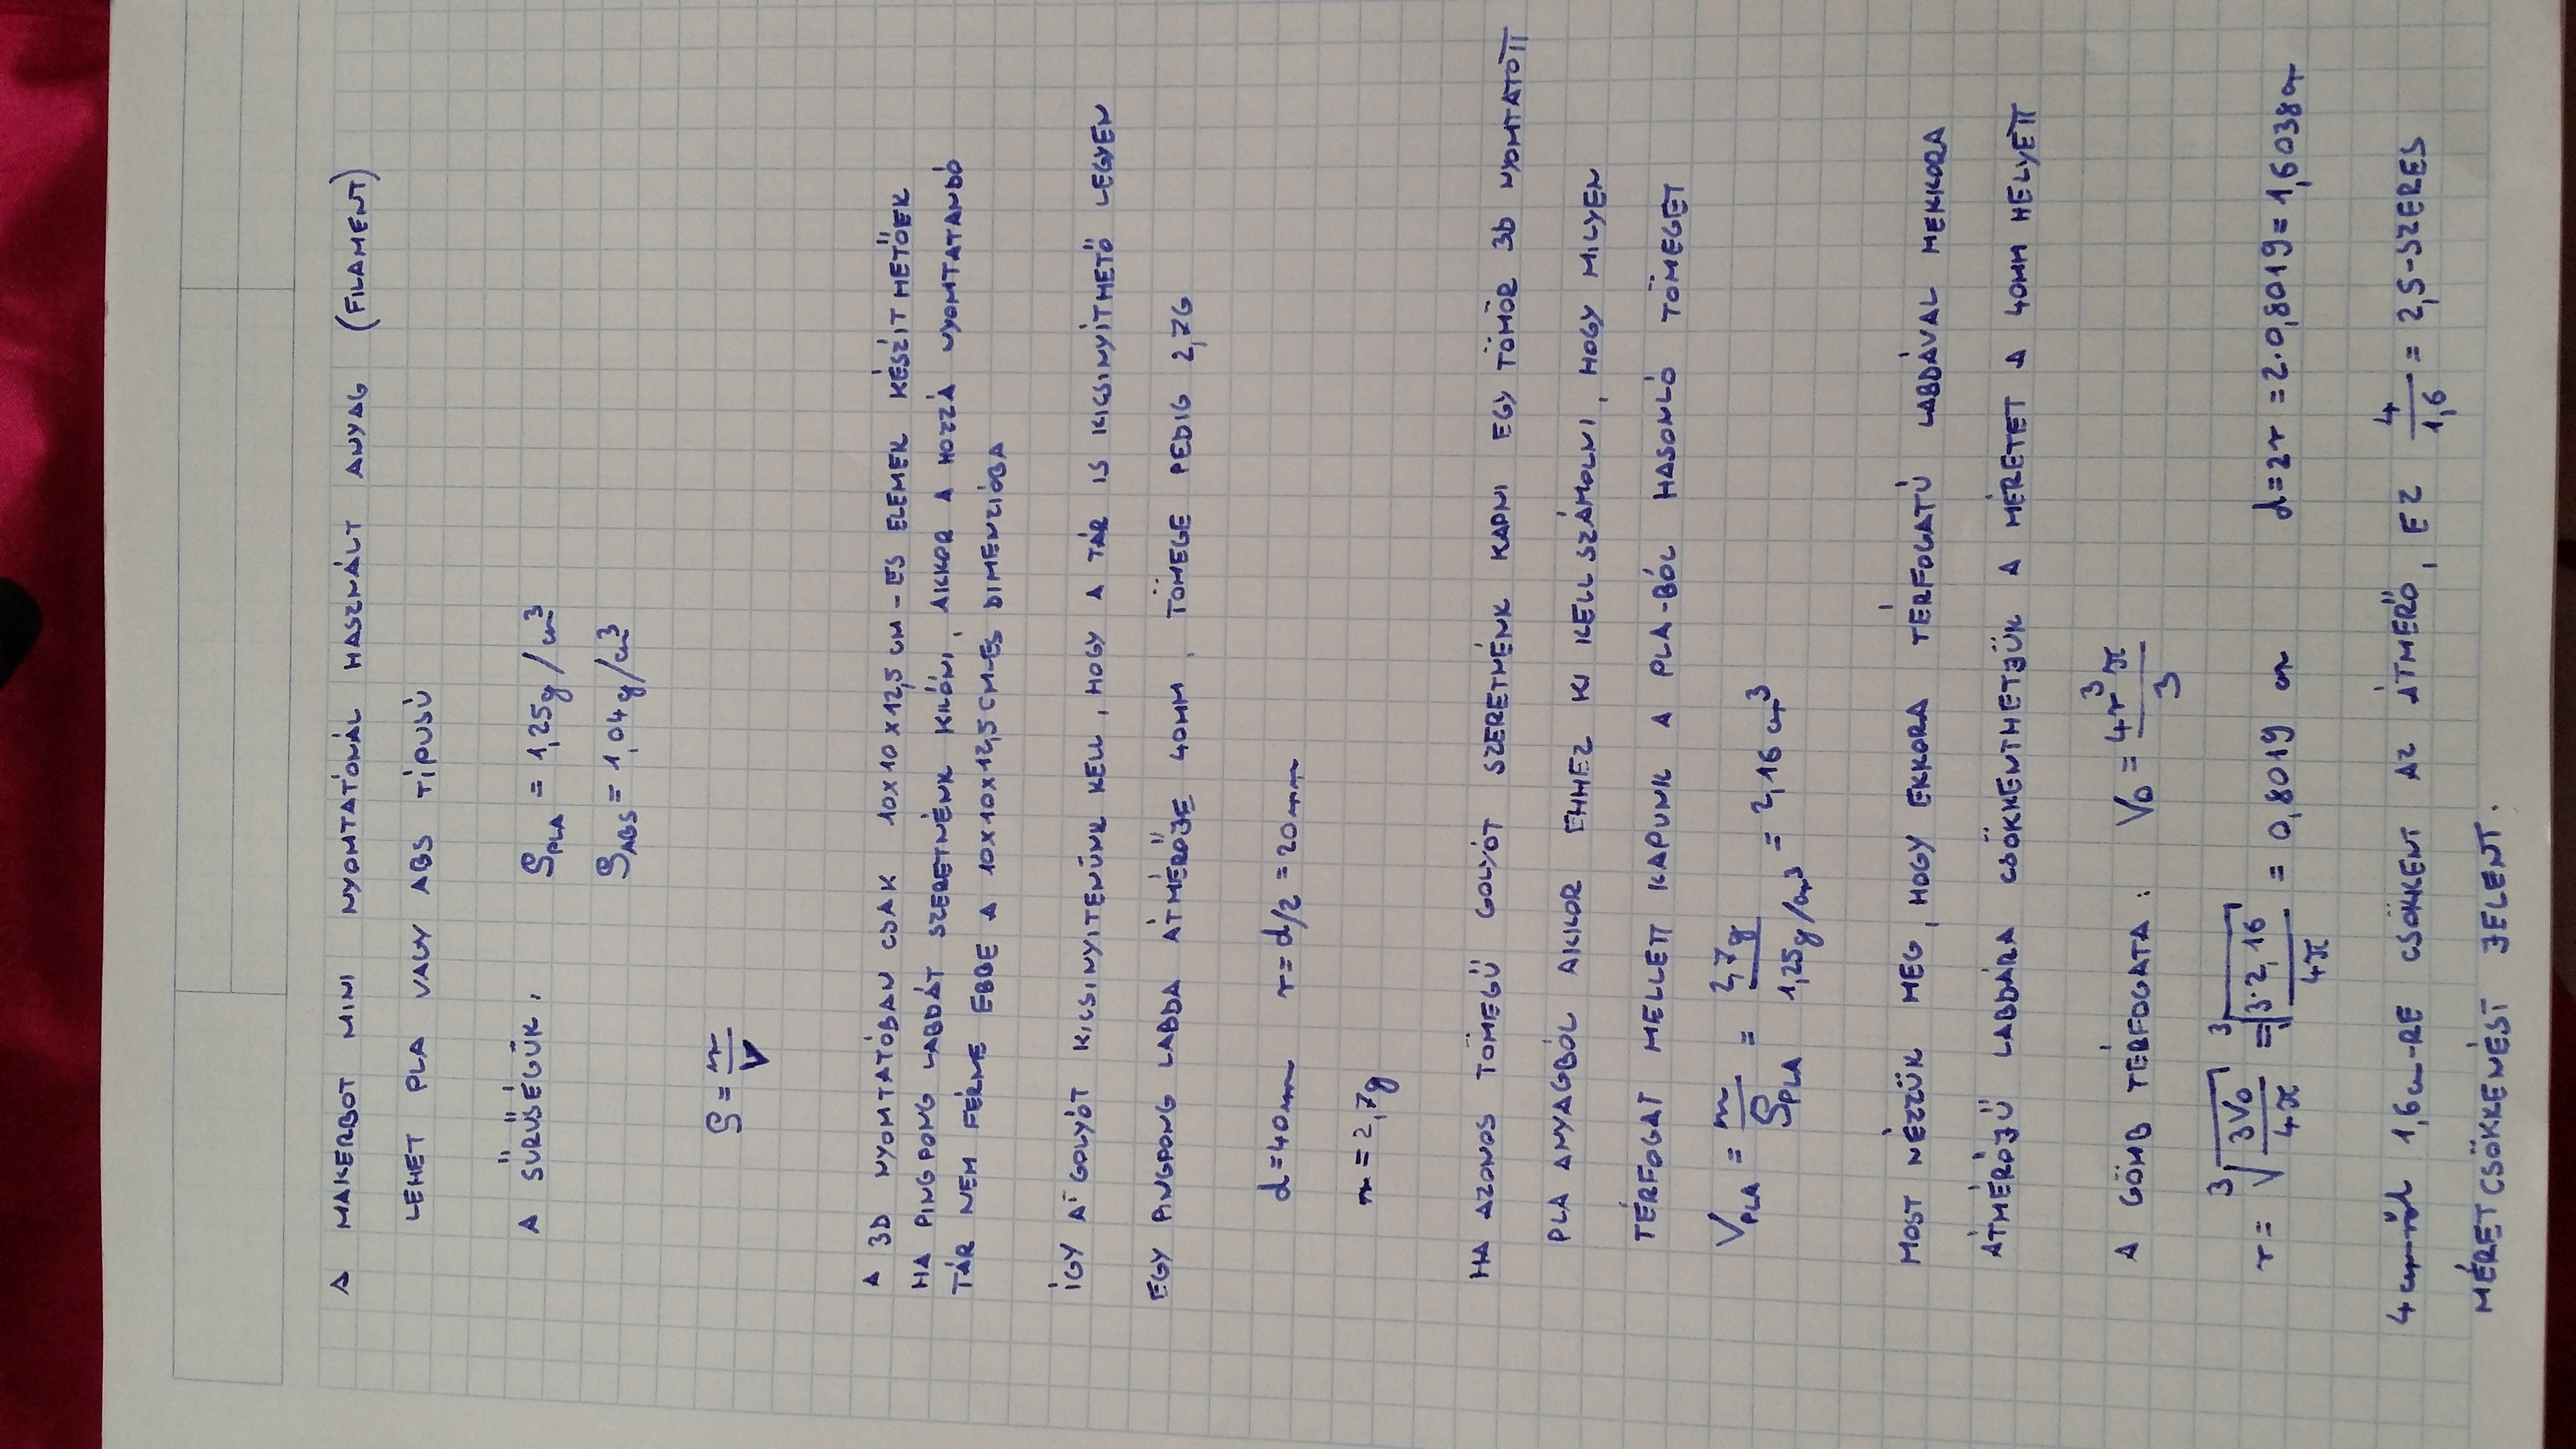 A MAKERBOT MINI NYOMTATÓNÁL HASZNÁLT ANYAG (FILAMENT)
LEHET PLA VAGY ABS TÍPUSÚ
A SŰRŰSÉGÜK: ρPLA = 1,25g/cm³
ρABS = 1,04g/cm³
ρ = m/V
A 3D NYOMTATÓBAN CSAK 10x10x12,5 CM-ES ELEMEK KÉSZÍTHETŐEK
HA PINGPONG LABDÁT SZERETNÉNK KILŐNI, AKKOR A HOZZÁ NYOMTATANDÓ
TÁR NEM FÉRNE EBBE A 10x10x12,5 CM-ES DIMENZIÓBA
ÍGY A GOLYÓT KICSINYITENÜNK KELL, HOGY A TÁR IS KICSINYÍTHETŐ LEGYEN
EGY PINGPONG LABDA ÁTMÉRŐJE 40MM, TÖMEGE PEDIG 2,7G
d=40mm r=d/2=20mm
m=2,7g
HA AZONOS TÖMEGŰ GOLYÓT SZERETNÉNK KAPNI EGY TÖMÖR 3D NYOMTATOTT
PLA ANYAGBÓL AKKOR EHHEZ KI KELL SZÁMOLNI, HOGY MILYEN
TÉRFOGAT MELLETT KAPUNK A PLA-BÓL HASONLÓ TÖMEGET
VPLA = m/ρPLA = 2,7g/1,25g/cm³ = 2,16 cm³
MOST NÉZZÜK MEG, HOGY EKKORA TÉRFOGATÚ LABDÁVAL MEKKORA
ÁTMÉRŐJŰ LABDÁRA CSÖKKENTHETJÜK A MÉRETET A 40MM HELYETT
A GÖMB TÉRFOGATA: V0 = 4r³π/3
r = ³√(3V0/4π) = ³√(3·2,16/4π) = 0,8019 cm d=2r=2·0,8019=1,6038cm
4cm-ről 1,6cm-RE CSÖKKENT AZ ÁTMÉRŐ, EZ 4/1,6 = 2,5-SZERES
MÉRETCSÖKKENÉST JELENT.